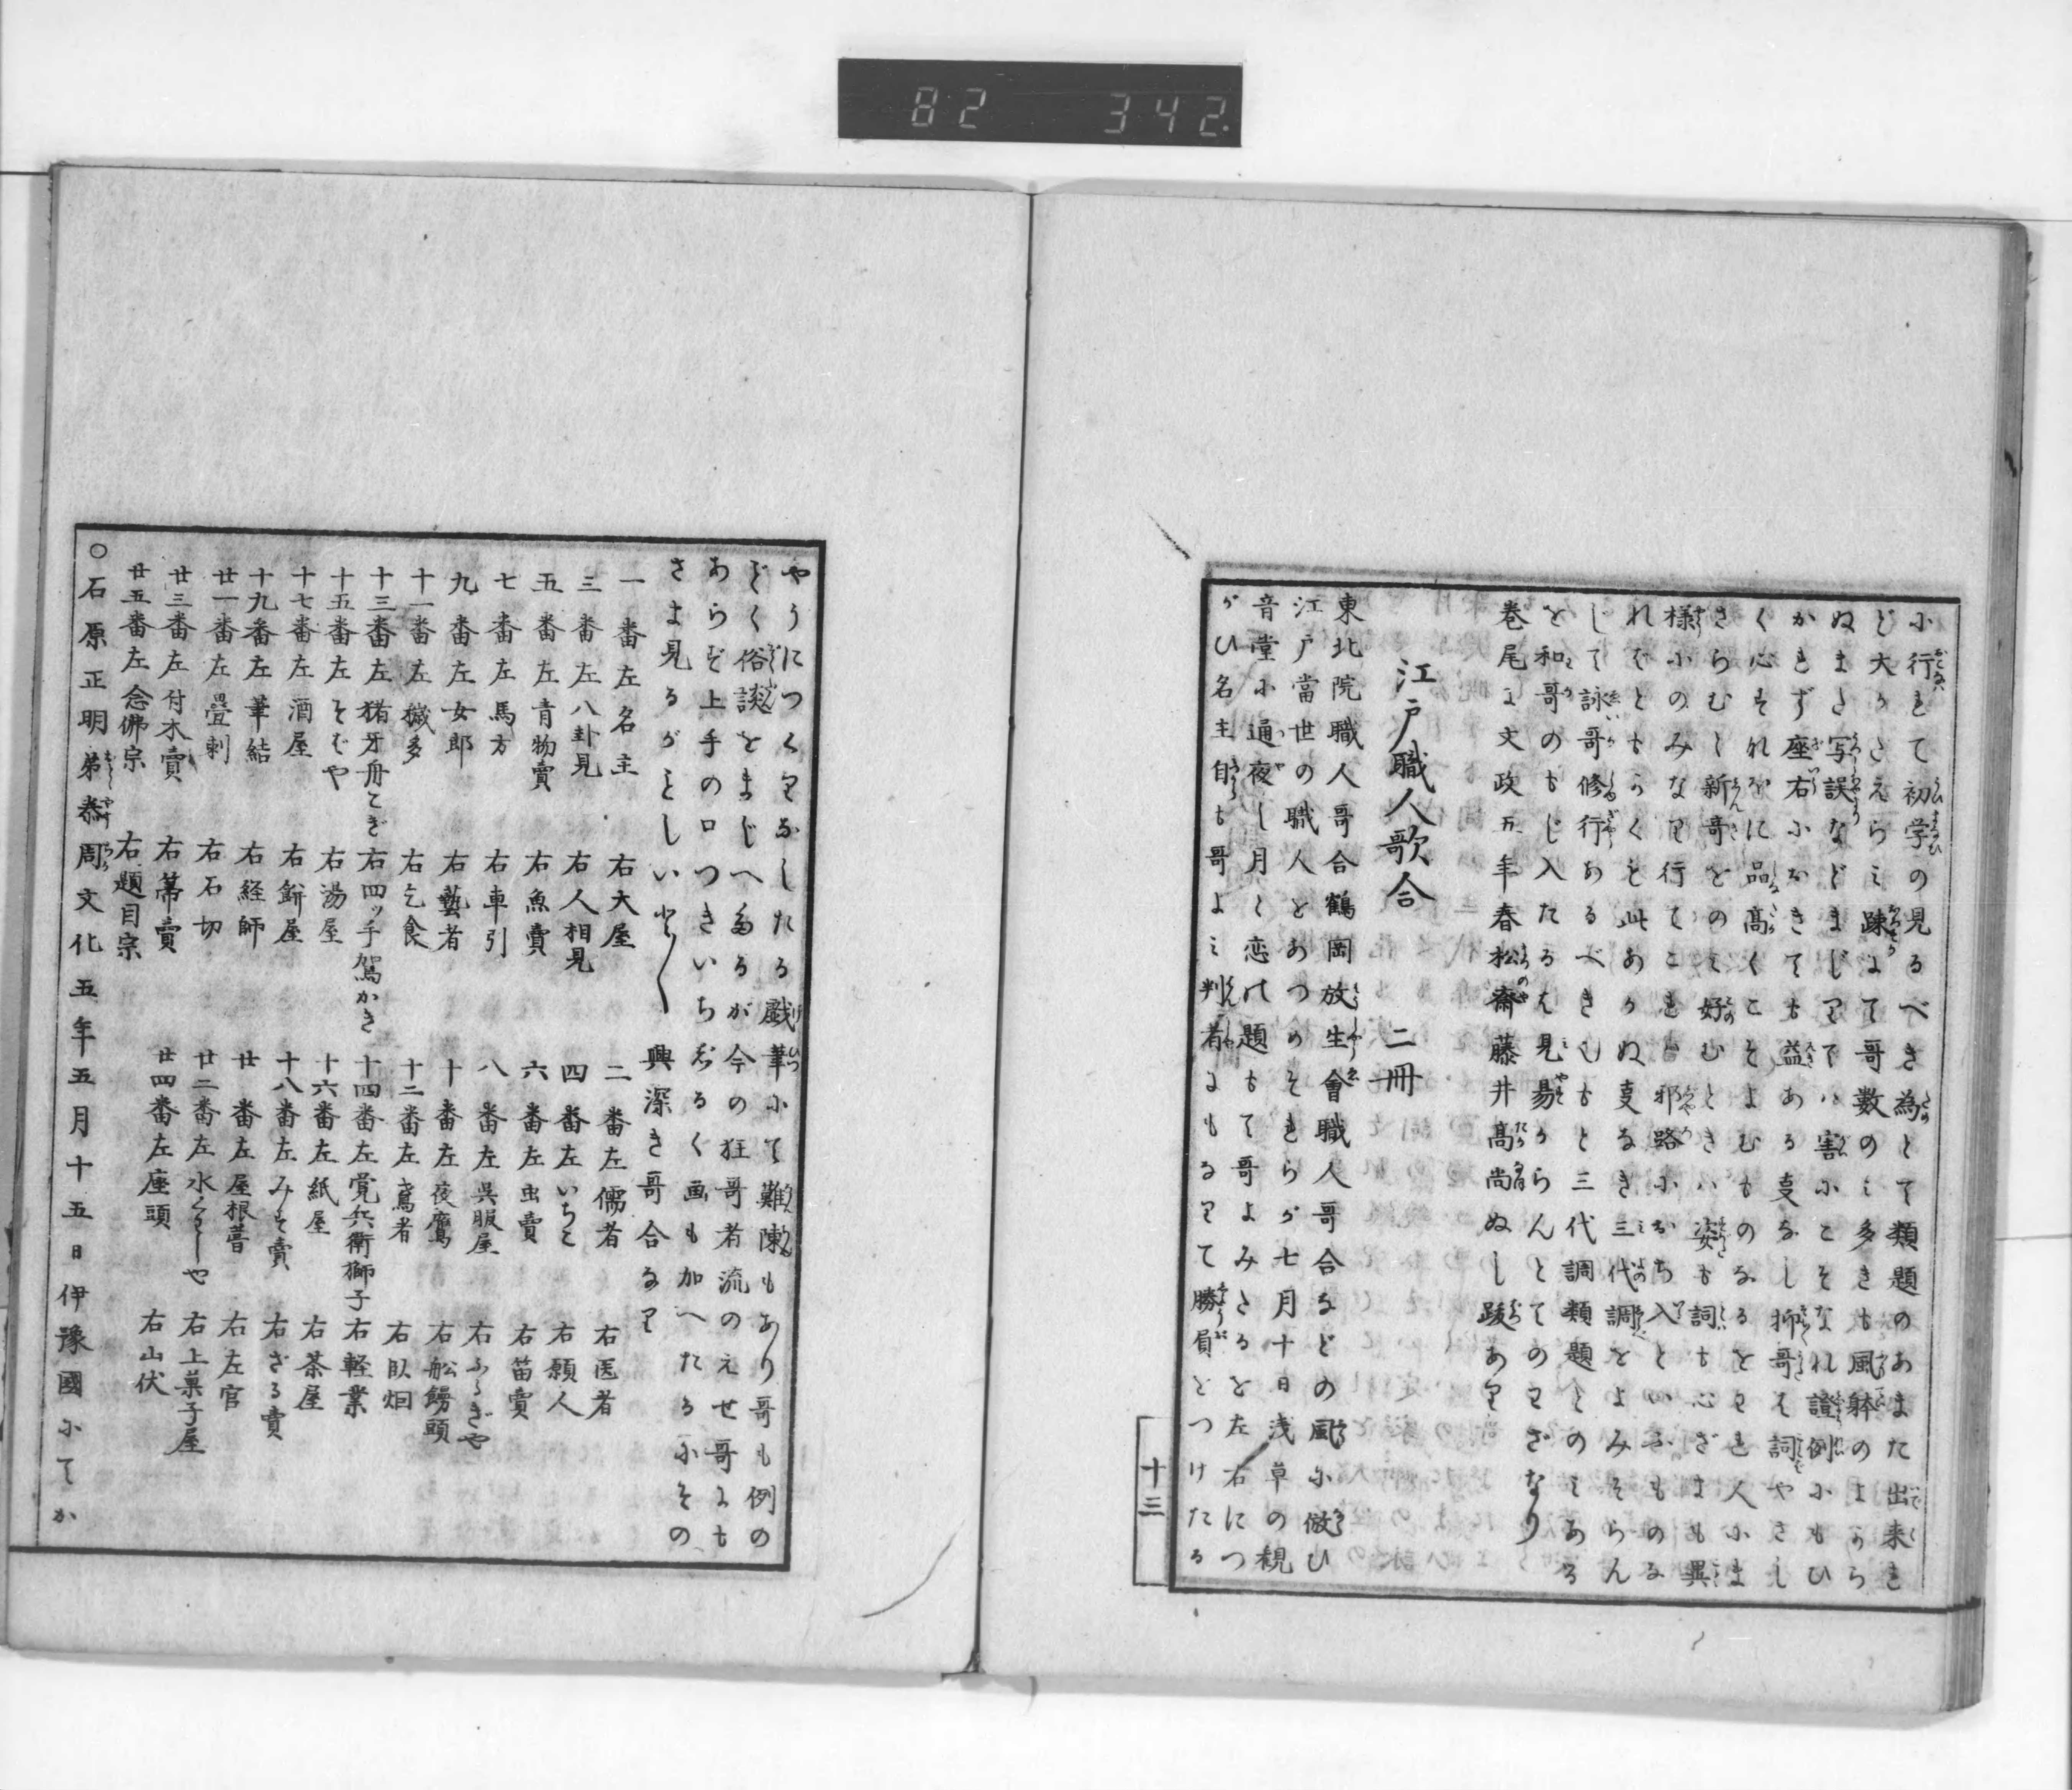 82 342
に行れて初学の見るべき為とて類題のあまた出来れ
ど大かさえらみ疎にて哥数のミ多きも風躰のよから
ぬまた写誤などまじりてハ害にこそなれ證例にもひ
かれず座右におきても益ある事なし抑哥は詞やさし
く心それ〳〵に品高くこそよむものなるをされ人にま
さらむと新哥をのミ好むときハ姿も詞も心ざまも異
様にのみなり行てこれも邪路におち入といふものな
れバともかくも此あかぬ事なき三代調をよみそらん
じて詠哥修行あるべきむもと三代調類題とのミある
を和哥のもじ入たるは見易からんとてのわざなり
巻尾に文政五年春松齋藤井髙尚ぬし跋あり
江戸職人歌合 二冊
東北院職人哥合鶴岡放生會職人哥合などの風に倣ひ
江戸當世の職人をあつめそれらが七月十日浅草の観
音堂に通夜し月と恋の題もて哥よみたるを左右につ
がひ名主自も哥よミ判者にもなりて勝負をつけたる
十三
やうにつくりなしたる戯筆にて難陳もあり哥も例の
ごく俗談をまじへたるが今の狂哥者流のえせ哥にも
あらず上手の口つきいちじるく画も加へたるにその
さま見るがごとしいと〳〵興深き哥合なり
一番左名主 右大屋 二番左儒者 右医者
三番左八卦見 右人相見 四番左いちこ 右願人
五番左青物賣 右魚賣 六番左虫賣 右苗賣
七番左馬方 右車引 八番左呉服屋 右ふるぎや
九番左女郎 右藝者 十番左夜鷹 右舩饅頭
十一番左穢多 右乞食 十二番左鳶者 右臥烟
十三番左猪牙舟こぎ 右四ッ手駕かき 十四番左覚兵衛獅子 右軽業
十五番左そばや 右湯屋 十六番左紙屋 右茶屋
十七番左酒屋 右餅屋 十八番左みそ賣 右ざる賣
十九番左筆結 右経師 廿番左屋根葺 右左官
廿一番左疊刺 右石切 廿二番左水くわしや 右上菓子屋
廿三番左付木賣 右箒賣 廿四番左座頭 右山伏
廿五番左念佛宗 右題目宗
○石原正明弟泰周文化五年五月十五日伊豫國にてか